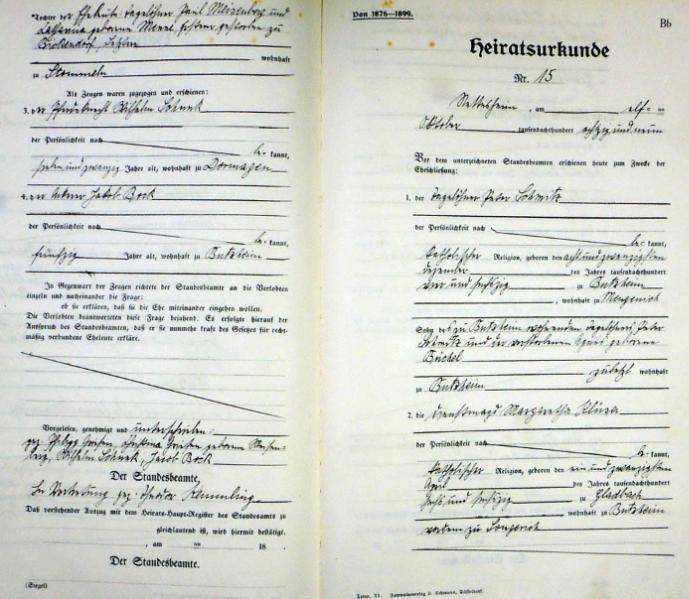 Tochter der Eheleute Tagelöhner Paul Meizenberg und
Catharina geborene
Bickendorf, letztere
wohnhaft
zu Stommeln
Als Zeugen waren zugezogen und erschienen:
3. der Pferdeknecht Wilhelm Schunk
der Persönlichkeit nach
be kannt,
sieben und zwanzig Jahre alt, wohnhaft zu Dormagen
4. der Ackerer Jacob Bock
der Persönlichkeit nach
be kannt,
fünfzig Jahre alt, wohnhaft zu Butzheim
In Gegenwart der Zeugen richtete der Standesbeamte an die Verlobten
einzeln und nacheinander die Frage:
ob sie erklären, daß sie die Ehe miteinander eingehen wollen.
Die Verlobten beantworteten diese Frage bejahend. Es erfolgte hierauf der
Ausspruch des Standesbeamten, daß er sie nunmehr kraft des Gesetzes für recht-
mäßig verbundene Eheleute erkläre.
Vorgelesen, genehmigt und unterschrieben
gez. Philipp Christina geborene
Wilhelm Schunk, Jacob Bock
Der Standesbeamte,
In Vertretung gez. Theodor Remmling
Daß vorstehender Auszug mit dem Heirats-Haupt-Register des Standesamts zu
gleichlautend ist, wird hiermit bestätigt.
, am ten 18
Der Standesbeamte.
(Siegel)
Von 1876—1899.
Bb
Heiratsurkunde
Nr. 15
Nettesheim, am elf ten
Oktober tausendachthundert achtzig und neun
Vor dem unterzeichneten Standesbeamten erschienen heute zum Zwecke der
Eheschließung:
1. der Tagelöhner Peter Schmitz
der Persönlichkeit nach
be kannt,
katholischer Religion, geboren den acht und zwanzigsten
Dezember des Jahres tausendachthundert
vier und sechzig zu Butzheim
, wohnhaft zu Mengenich
Sohn des zu Butzheim wohnenden Tagelöhners Peter
Schmitz und der verstorbenen Agnes geborene
Büchel
zuletzt wohnhaft
zu Butzheim
2. die Dienstmagd Margaretha
der Persönlichkeit nach
be kannt,
katholischer Religion, geboren den ein und zwanzigsten
April des Jahres tausendachthundert
sechs und sechzig zu Gladbach
wohnhaft zu Butzheim
vordem zu Longerich